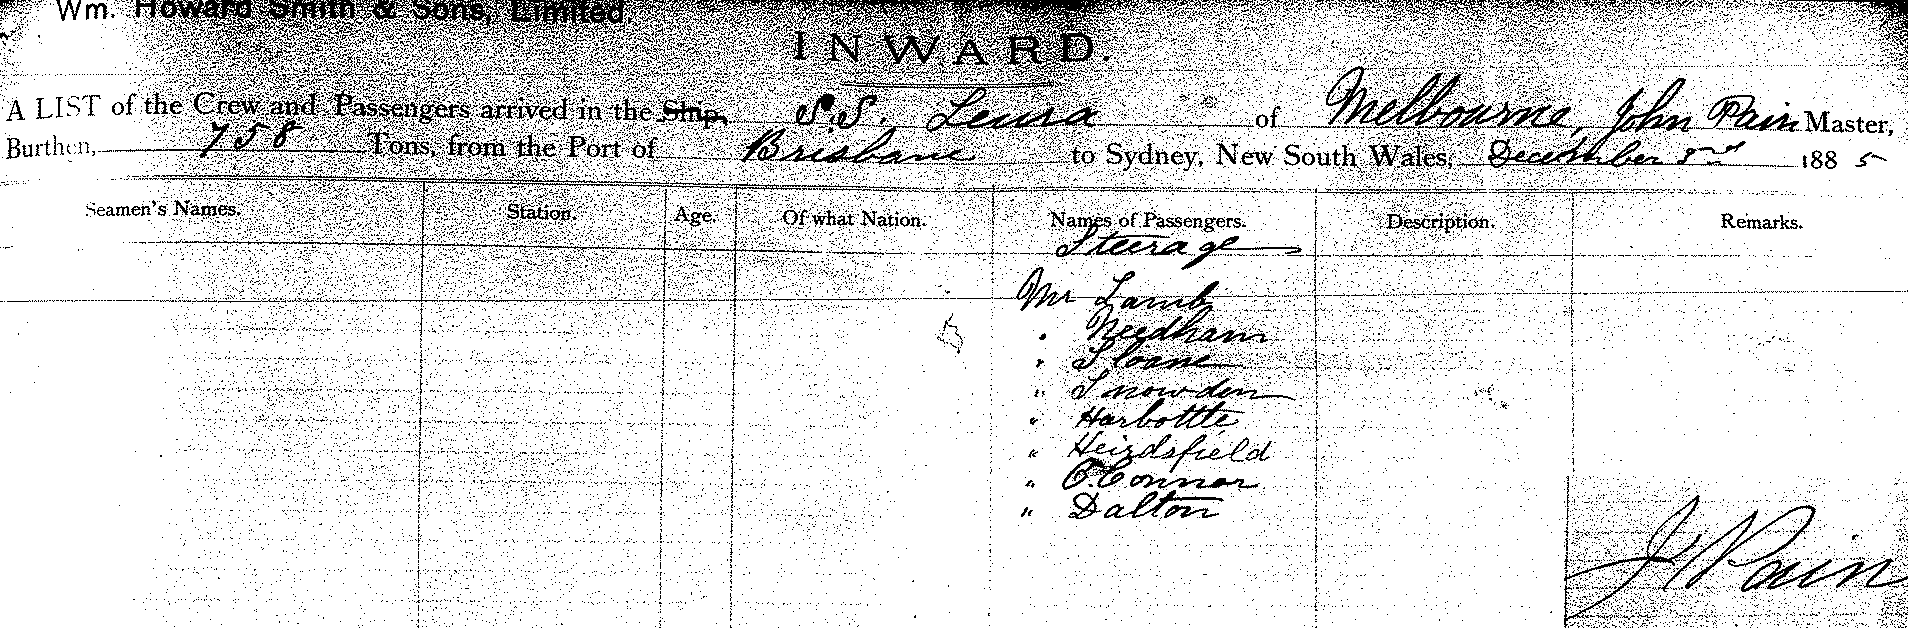 Wm. Howard Smith & Sons, Limited
INWARD.
A LIST of the Crew and Passengers arrived in the Ship, S.S. Leura of Melbourne, John Pain Master,
Burthen, 758 Tons, from the Port of Brisbane to Sydney, New South Wales, December 3rd 1885
Seamen's Names. Station. Age. Of what Nation. Names of Passengers. Description. Remarks.
Steerage
Mr Lamb
" Needham
" Sloane
" Snowden
" Harbottle
" Heirdsfield
" O'Connor
" Dalton
J Pain